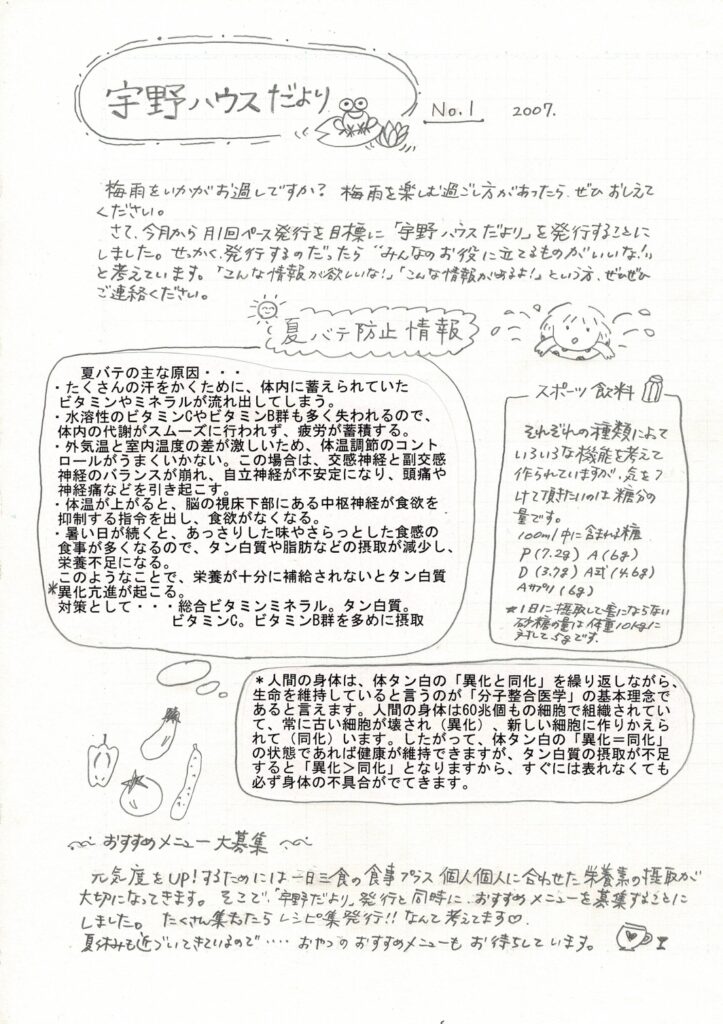 宇野ハウスだより
No.1 2007.
梅雨をいかがお過しですか? 梅雨を楽しむ過ごし方があったら、ぜひおしえて
ください。
さて、今月から月1回ペース発行を目標に「宇野ハウスだより」を発行することに
しました。せっかく、発行するのだったら“みんなのお役に立てるものがいいな!”
と考えています。「こんな情報が欲しいな!」「こんな情報があるよ!」という方、ぜひぜひ
ご連絡ください。
夏バテ防止情報
夏バテの主な原因・・・
・たくさんの汗をかくために、体内に蓄えられていた
ビタミンやミネラルが流れ出してしまう。
・水溶性のビタミンCやビタミンB群も多く失われるので、
体内の代謝がスムーズに行われず、疲労が蓄積する。
・外気温と室内温度の差が激しいため、体温調節のコント
ロールがうまくいかない。この場合は、交感神経と副交感
神経のバランスが崩れ、自立神経が不安定になり、頭痛や
神経痛などを引き起こす。
・体温が上がると、脳の視床下部にある中枢神経が食欲を
抑制する指令を出し、食欲がなくなる。
・暑い日が続くと、あっさりした味やさらっとした食感の
食事が多くなるので、タン白質や脂肪などの摂取が減少し、
栄養不足になる。
このようなことで、栄養が十分に補給されないとタン白質
*異化亢進が起こる。
対策として・・・総合ビタミンミネラル。タン白質。
ビタミンC。ビタミンB群を多めに摂取
スポーツ飲料
それぞれの種類によって
いろいろな機能を考えて
作られていますが、気をつ
けて頂きたいのは糖分の
量です。
100ml中に含まれる糖
P(7.2g) A(6g)
D(3.7g) A式(4.6g)
Aサプリ(6g)
*1日に摂取して害にならない
砂糖の量は体重10kgに
対して5gです。
*人間の身体は、体タン白の「異化と同化」を繰り返しながら、
生命を維持していると言うのが「分子整合医学」の基本理念で
あると言えます。人間の身体は60兆個もの細胞で組織されてい
て、常に古い細胞が壊され(異化)、新しい細胞に作りかえら
れて(同化)います。したがって、体タン白の「異化=同化」
の状態であれば健康が維持できますが、タン白質の摂取が不足
すると「異化>同化」となりますから、すぐには表れなくても
必ず身体の不具合がでてきます。
おすすめメニュー大募集
元気度をUP!するためには一日三食の食事プラス個人個人に合わせた栄養素の摂取が
大切になってきます。そこで、「宇野だより」発行と同時に、おすすめメニューを募集することに
しました。たくさん集まったらレシピ集発行!!なんて考えてます♡.
夏休みも近づいてきているので‥‥おやつのおすすめメニューもお待ちしています。